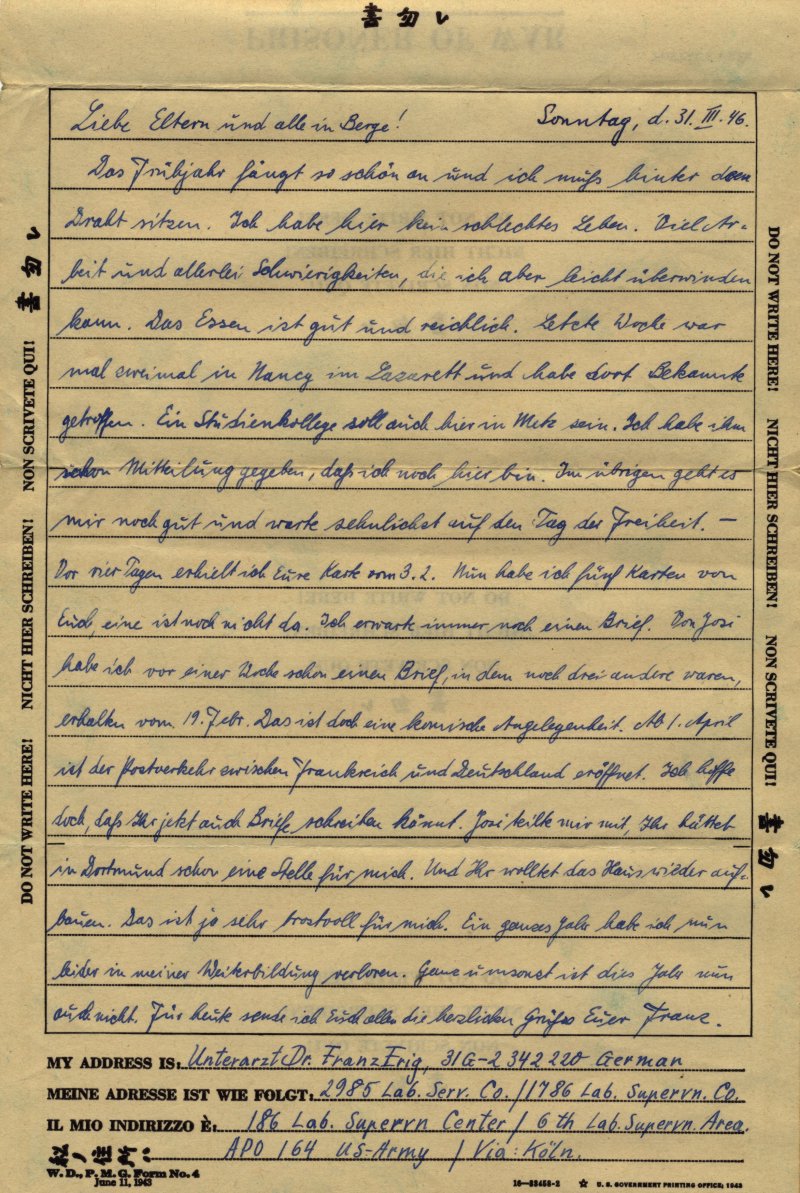 書勿レ
Liebe Eltern und alle in Berge! Sonntag, d. 31. III. 46.
Das Frühjahr fängt so schön an und ich muß hinter dem
Draht sitzen. Ich habe hier kein schlechtes Leben. Viel Ar-
beit und allerlei Schwierigkeiten, die ich aber leicht überwinden
kann. Das Essen ist gut und reichlich. Letzte Woche war
mal zweimal in Nancy im Lazarett und habe dort Bekannte
getroffen. Ein Studienkollege soll auch hier in Metz sein. Ich habe ihm
schon Mitteilung gegeben, daß ich noch hier bin. Im übrigen geht es
mir noch gut und warte sehnlichst auf den Tag der Freiheit. —
Vor vier Tagen erhielt ich Eure Karte vom 3.2. Nun habe ich fünf Karten von
Euch, eine ist noch nicht da. Ich erwarte immer noch einen Brief. Von Josi
habe ich vor einer Woche schon einen Brief, in dem noch drei andere waren,
erhalten vom 19. Febr. Das ist doch eine komische Angelegenheit. Ab 1. April
ist der Postverkehr zwischen Frankreich und Deutschland eröffnet. Ich hoffe
doch, daß Ihr jetzt auch Briefe schreiben könnt. Josi teilte mir mit, Ihr hättet
in Dortmund schon eine Stelle für mich. Und Ihr wolltet das Haus wieder auf-
bauen. Das ist ja sehr trostvoll für mich. Ein ganzes Jahr habe ich nun
leider in meiner Weiterbildung verloren. Ganz umsonst ist dies Jahr nun
auch nicht. Für heute sende ich Euch allen die herzlichen Grüße Euer Franz.
DO NOT WRITE HERE! NICHT HIER SCHREIBEN! NON SCRIVETE QUI! 書勿レ
DO NOT WRITE HERE! NICHT HIER SCHREIBEN! NON SCRIVETE QUI! 書勿レ
MY ADDRESS IS: Unterarzt Dr. Franz Erig, 31G-2 342 220 German
MEINE ADRESSE IST WIE FOLGT: 2985 Lab. Serv. Co. / 1786 Lab. Supervn. Co.
IL MIO INDIRIZZO È: 186 Lab. Supervn Center / 6th Lab. Supervn. Area.
私ノ住所ハ APO 164 US-Army / Via: Köln.
W. D., P. M. G. Form No. 4
June 11, 1943
16—33458-2 ☆ U. S. GOVERNMENT PRINTING OFFICE; 1943